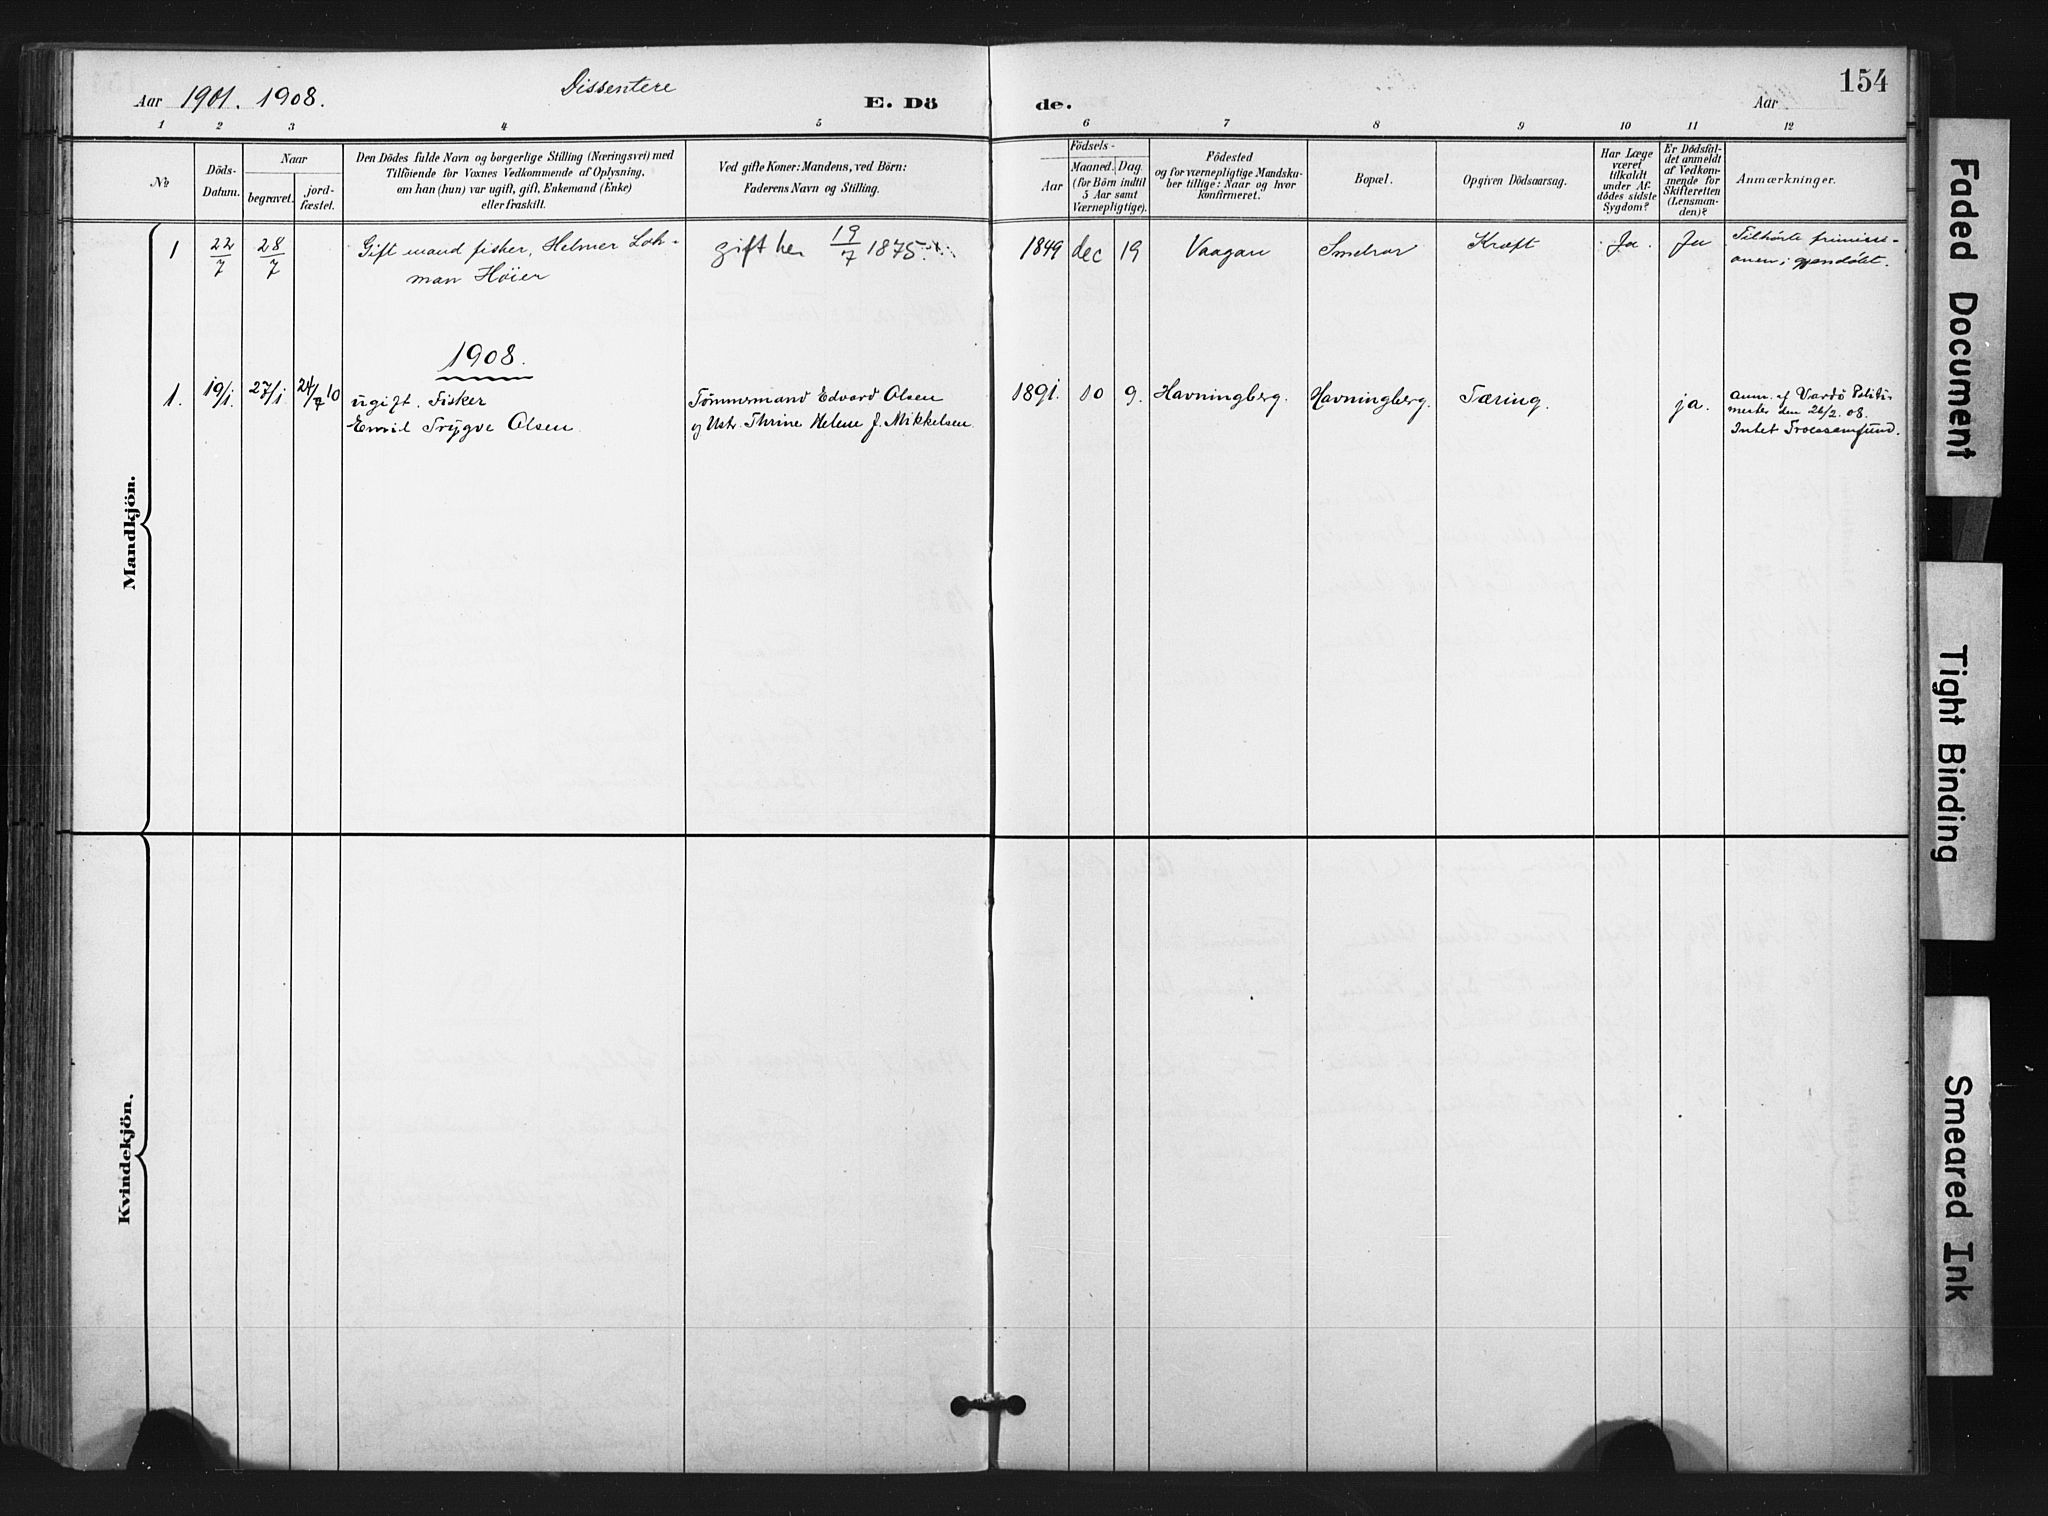 Aar 1901. 1908.
Dissentere
E. Dö
de.
Aar
154
1 2 3 4 5 6 7 8 9 10 11 12
№
Döds-
Datum.
Naar
begravet.
jord-
fæstet.
Den Dödes fulde Navn og borgerlige Stilling (Næringsvei) med
Tilföiende for Voxnes Vedkommende af Oplysning,
om han (hun) var ugift, gift, Enkemand (Enke)
eller fraskilt.
Ved gifte Koner: Mandens, ved Börn:
Faderens Navn og Stilling.
Födsels-
Aar
Maaned. Dag.
(for Börn indtil
5 Aar samt
Værnepligtige).
Födested
og for værnepligtige Mandsku-
ber tillige: Naar og hvor
konfirmeret.
Bopæl.
Opgiven Dödsaarsag.
Har Læge
været
tilkaldt
under Af-
dödes sidste
Sygdom?
Er Dödsfal-
det anmeldt
af Vedkom-
mende for
Skifteretten
(Lensman-
den)?
Anmærkninger.
Mandkjön.
1 22/7 28/7 Gift mand fisker, Helmer Loh-
man Höier
gift den 19/7 1875
1849 dec 19 Vaagan Smelror Kræft Ja. Ja
Tilhørte frimissi-
onen i
1908.
1. 19/1. 27/1 24/7 10 ugift. Fisker
Emil Trygve Olsen.
Tömmermand Edvard Olsen
og Ustr. Thrine Helene f. Mikkelsen.
1891. 10 9. Havningberg. Havningberg. Tæring. ja.
anm. af Vardö Politi-
mester den 26/2. 08.
Intet Troessamfund.
Kvindekjön.
Faded Document
Tight Binding
Smeared Ink